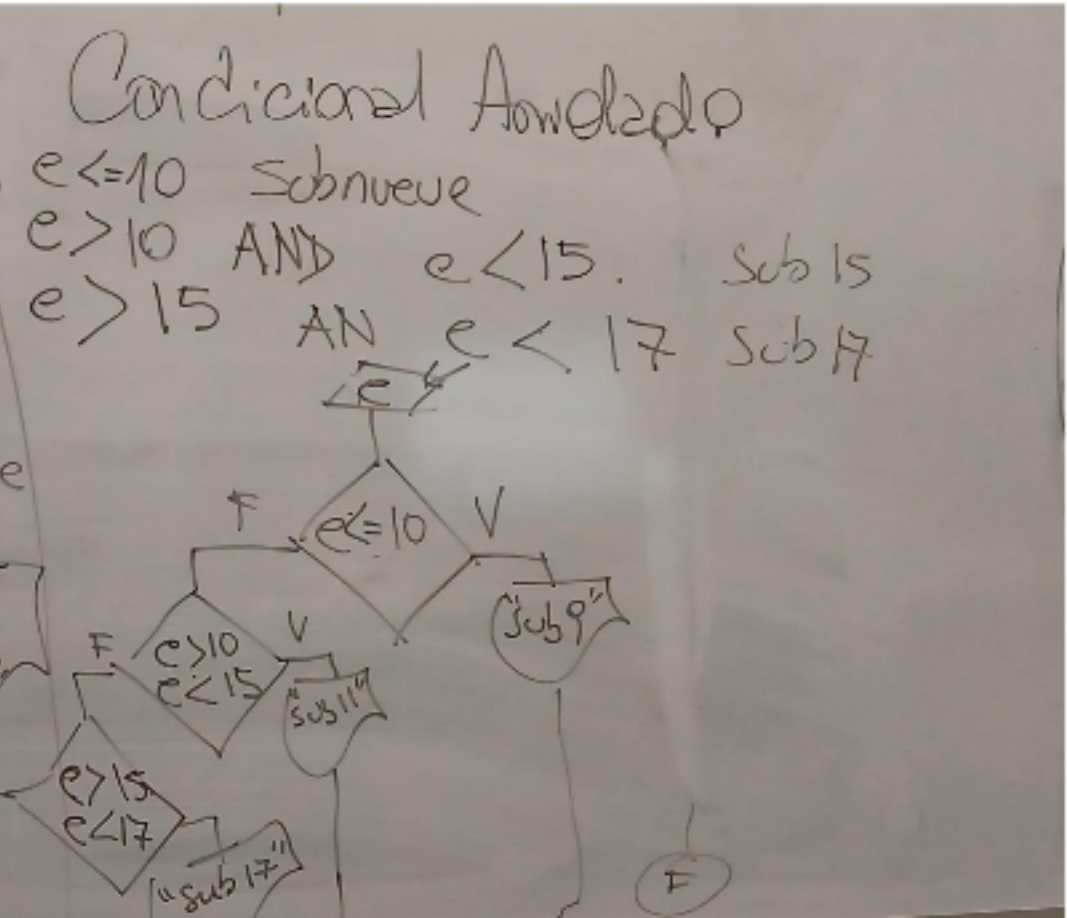 Condicional Anidado
e<=10 Subnueve
e>10 AND e<15. Sub 15
e>15 AN e<17 Sub 17
e
e
F e<=10 V
"Sub9"
F e>10 V
e<15
"sub11"
e>15
e<17
"sub17"
F